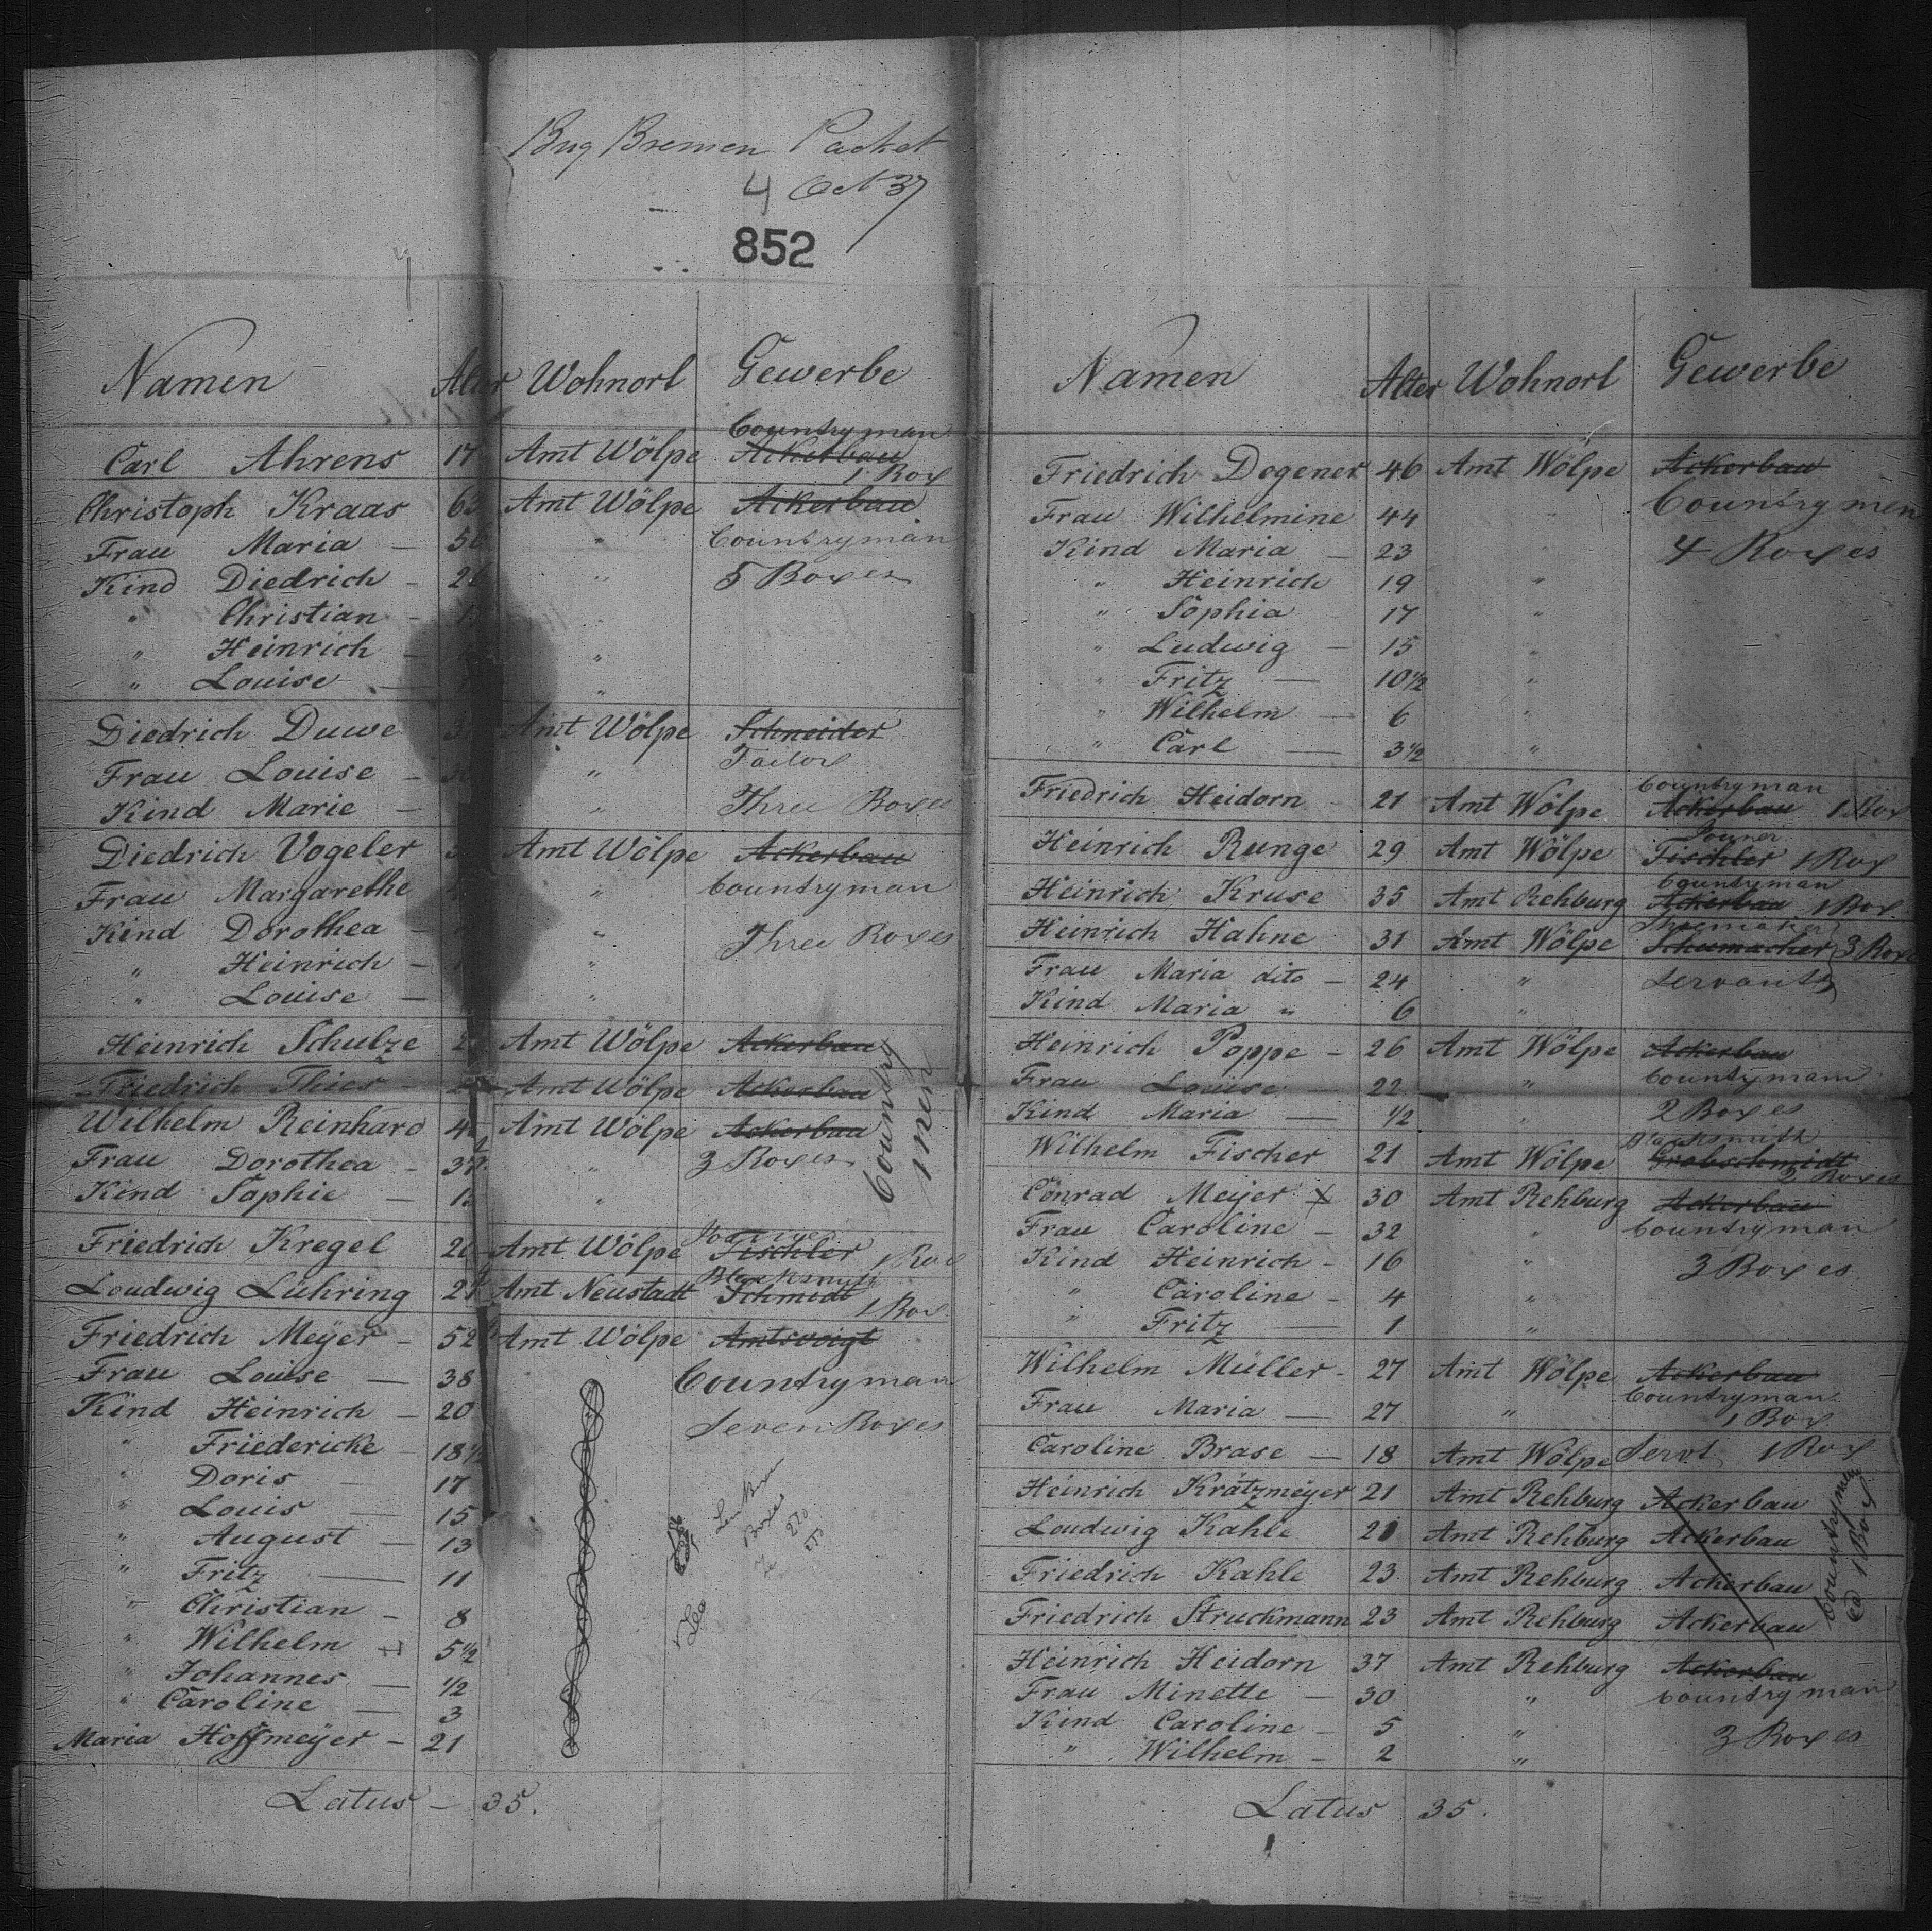 Brig Bremen Packet
4 Oct 37
852
Namen Alter Wohnort Gewerbe
Countryman
Carl Ahrens 17 Amt Wölpe Ackerbau
1 Box
Christoph Kraas 63 Amt Wölpe Ackerbau
Frau Maria — " Countryman
Kind Diedrich - " 5 Boxes
" Christian - "
" Heinrich - "
" Louise — "
Diedrich Duwe Amt Wölpe Schneider
Tailor
Frau Louise - "
Kind Marie - " Three Boxes
Diedrich Vogeler Amt Wölpe Ackerbau
Frau Margarethe " Countryman
Kind Dorothea - " Three Boxes
" Heinrich - "
" Louise — "
Heinrich Schulze Amt Wölpe Ackerbau
Friedrich Thies - Amt Wölpe Ackerbau
Wilhelm Reinhard Amt Wölpe Ackerbau
Country men
Frau Dorothea - 37 " 3 Boxes
Kind Sophie — "
Friedrich Kregel Amt Wölpe Tischler 1 Box
Blacksmith
Loudwig Lühring Amt Neustadt Schmidt
1 Box
Friedrich Meÿer - 52 Amt Wölpe Amtsvoigt
Frau Louise — 38 Countryman
Kind Heinrich — 20 Seven Boxes
" Friedericke - 18 1/2
" Doris — 17
" Louis — 15
" August — 13
" Fritz — 11
" Christian - 8
" Wilhelm 5 1/2
" Johannes — 1/2
" Caroline — 3
Maria Hoffmeÿer - 21
Latus — 35.
Namen Alter Wohnort Gewerbe
Friedrich Degener 46 Amt Wölpe Ackerbau
Frau Wilhelmine 44 " Countrymen
Kind Maria — 23 " 4 Boxes
" Heinrich 19 "
" Sophia 17 "
" Ludwig — 15 "
" Fritz — 10 1/2 "
" Wilhelm — 6 "
" Carl — 3 1/2 "
Countryman
Friedrich Heidorn - 21 Amt Wölpe Ackerbau 1 Box
Joiner
Heinrich Runge 29 Amt Wölpe Tischler 1 Box
Countryman
Heinrich Kruse 35 Amt Rehburg Ackerbau 1 Box
Shoemaker
Heinrich Hahne 31 Amt Wölpe Schumacher 3 Boxes
Frau Maria dito — 24 " Servant
Kind Maria " 6 "
Heinrich Poppe - 26 Amt Wölpe Ackerbau
Frau Louise - 22 " Countryman
Kind Maria — 1/2 " 2 Boxes
Blacksmith
Wilhelm Fischer 21 Amt Wölpe Grobschmidt
2 Boxes
Conrad Meÿer x 30 Amt Rehburg Ackerbau
Frau Caroline - 32 " Countryman
Kind Heinrich - 16 " 3 Boxes
" Caroline - 4 "
" Fritz — 1 "
Wilhelm Müller - 27 Amt Wölpe Ackerbau
Countryman
Frau Maria — 27 " 1 Box
Caroline Brase — 18 Amt Wölpe Servt 1 Box
Heinrich Krätzmeÿer 21 Amt Rehburg Ackerbau
Loudwig Kahle Amt Rehburg Ackerbau
Friedrich Kahle 23 Amt Rehburg Ackerbau
Friedrich Struckmann 23 Amt Rehburg Ackerbau
Countrymen
1 Box
Heinrich Heidorn 37 Amt Rehburg Ackerbau
Frau Minette — 30 " Countryman
Kind Caroline - 5 " 3 Boxes
" Wilhelm - 2 "
Latus 35.